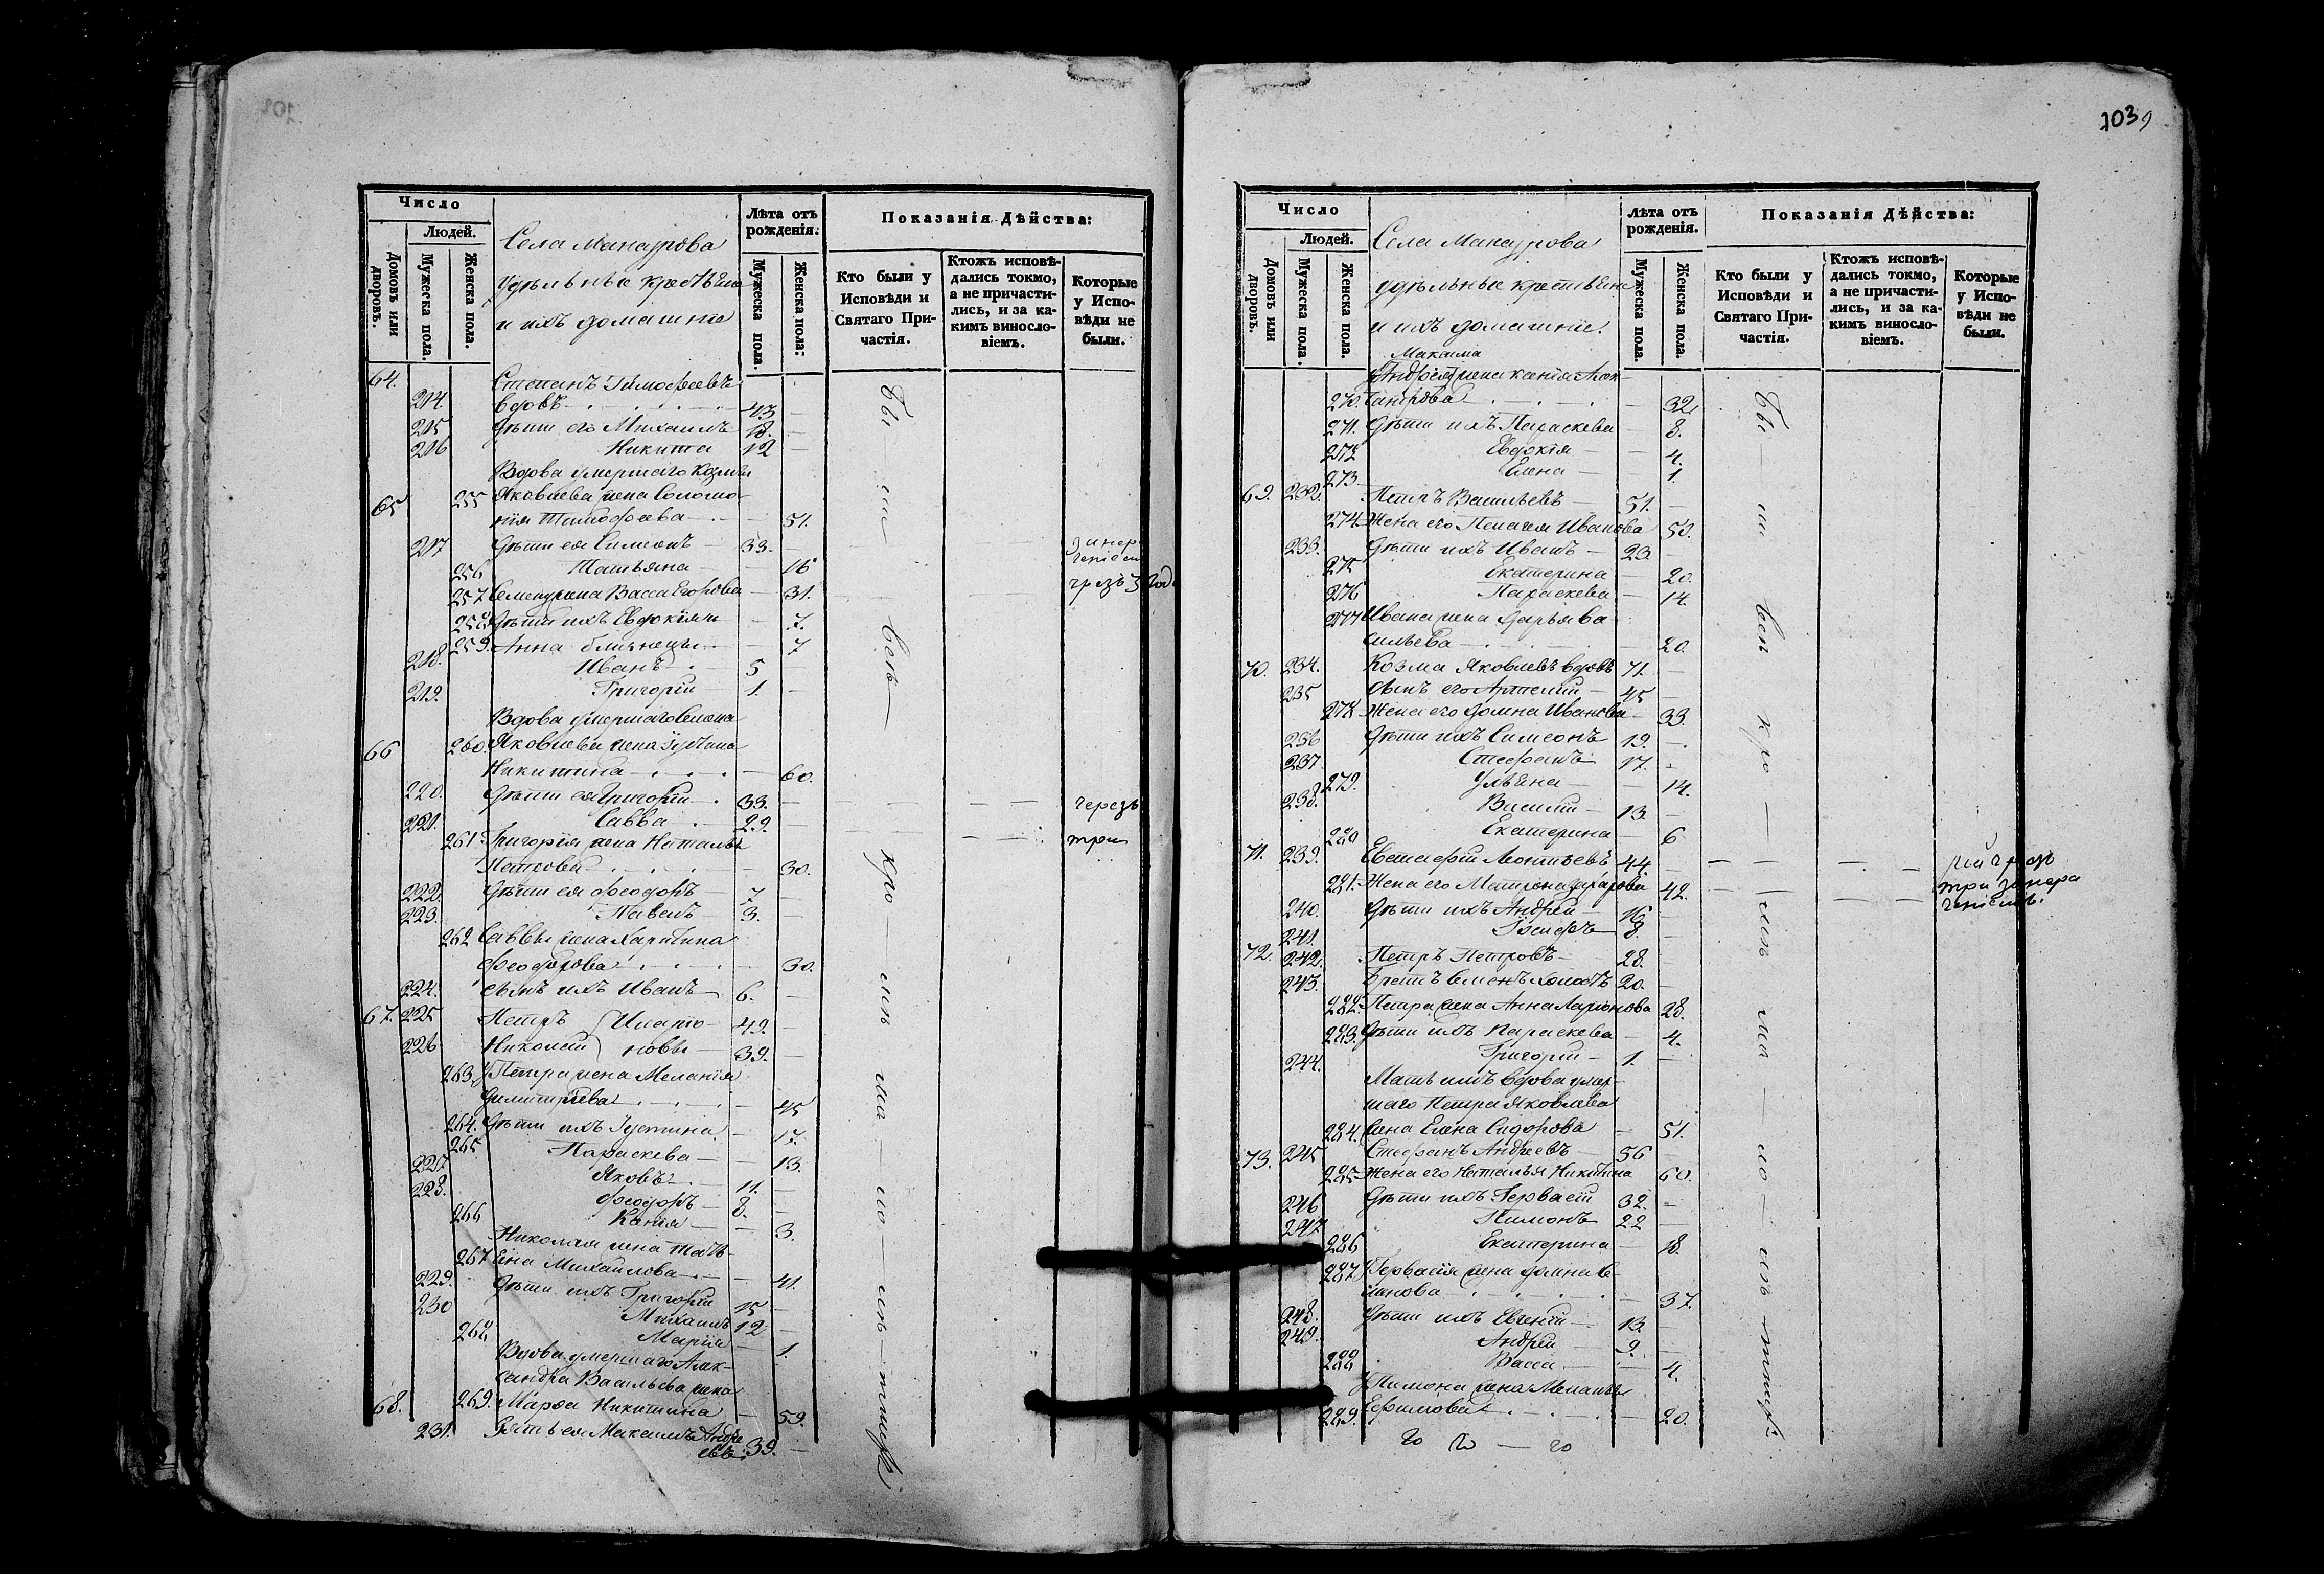 103
Число
Людей.
Домовъ или дворовъ.
Мужеска пола.
Женска пола.
Села Манадрова
удѣльные крестьяне
и ихъ домашніе
Лѣта отъ рожденія.
Мужеска пола.
Женска пола.
Показанія Дѣйства:
Кто были у Исповѣди и Святаго Причастія.
Ктожъ исповѣдались токмо, а не причастились, и за какимъ винословіемъ.
Которые у Исповѣди не были.
64. Степанъ Тимофеевъ
214. вдовъ 43
215 Дѣти его Михаилъ 18.
216 Никита 12
Вдова умершаго Козмы
65 255 Яковлева жена Соломо-
нія Тимофеева 51.
217 Дѣти ея Симеонъ 33.
256 Татьяна 16
257 Семена жена Васса Егорова 31.
258 Дѣти ихъ Евдокія 7.
259. Анна близнецы 7
218. Иванъ 5
219. Григорій 1.
Вдова умершаго Семена
66 260. Яковлева жена Іуліана
Никитина 60.
220. Дѣти ея Григорій 33. через
221. Савва 29.
261 Григорія жена Наталья три
Петрова 30.
222. Дѣти ея Феодоръ 7
223. Павелъ 3.
262 Саввы жена Харитина
Феодорова 30.
224. сынъ ихъ Иванъ 6.
67. 225 Петръ Иларіо- 49.
226 Николай новы 39.
263. Петра жена Меланія
Димитріева 45
264. Дѣти ихъ Іустина 17.
265 Параскева 13.
227 Яковъ 11.
228. Феодоръ 8.
266 Ксенія 3.
Николая жена Тать-
267 яна Михаилова 41.
229. Дѣти ихъ Григорій 15
230 Михаилъ 12
268 Марія 1.
Вдова умершаго Алек-
сандра Васильева жена
68. 269. Марфа Никитина 59.
231. Зять ея Максимъ Андре
евъ 39.
бы — ли — всѣ — кро
Число
Людей.
Домовъ или дворовъ.
Мужеска пола.
Женска пола.
Села Манадрова
удѣльные крестьяне
и ихъ домашніе.
Лѣта отъ рожденія.
Мужеска пола.
Женска пола.
Показанія Дѣйства:
Кто были у Исповѣди и Святаго Причастія.
Ктожъ исповѣдались токмо, а не причастились, и за какимъ винословіемъ.
Которые у Исповѣди не были.
Максима
жена Ксенія Алек-
270. сандрова 32.
271. Дѣти ихъ Параскева 8.
272 Евдокія 4.
273. Елена 1.
69. 232. Петръ Васильевъ 51.
274 Жена его Пелагея Иванова 50.
233. Дѣти ихъ Иванъ 23
275 Екатерина 20.
276 Параскева 14.
277 Ивана жена Дарья Ва-
сильева 20.
70. 234. Козма Яковлевъ вдовъ 71.
235 Сынъ его Артемій 45
278 Жена его Домна Иванова 33.
236 Дѣти ихъ Симеонъ 19.
237 Стефанъ 17.
279. Ульяна 14.
238. Василій 13.
280 Екатерина 6
71. 239. Евстафій Леонтьевъ 44.
281. Жена его Матрона 42.
240. Дѣти ихъ Андрей 16
241. Іосифъ 8.
72. 242. Петръ Петровъ 28.
243. Братъ Семенъ холостъ 20.
282. Петра жена Анна Ларіонова 28.
283. Дѣти ихъ Параскева 4.
244. Григорій 1.
Мать ихъ вдова умер-
шаго Петра Яковлева
284. жена Елена Сидорова 51.
73. 245 Стефанъ Андреевъ 56
285 Жена его Наталья Никитина 60.
246 Дѣти ихъ Гервасій 32.
247 Пимонъ 22
286 Екатерина 18.
287 Гервасія жена Домна С-
ианова 37.
248. Дѣти ихъ Евгеній 13.
249. Андрей 9.
288 Васса 4.
Пимона жена Меланья
289. Ефимова 20.